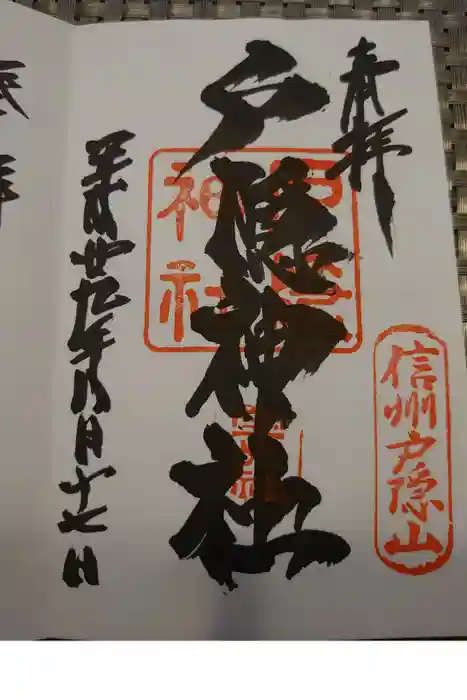 奉拝
信州戸隠山
戸隠神社
平成廿九年八月十七日